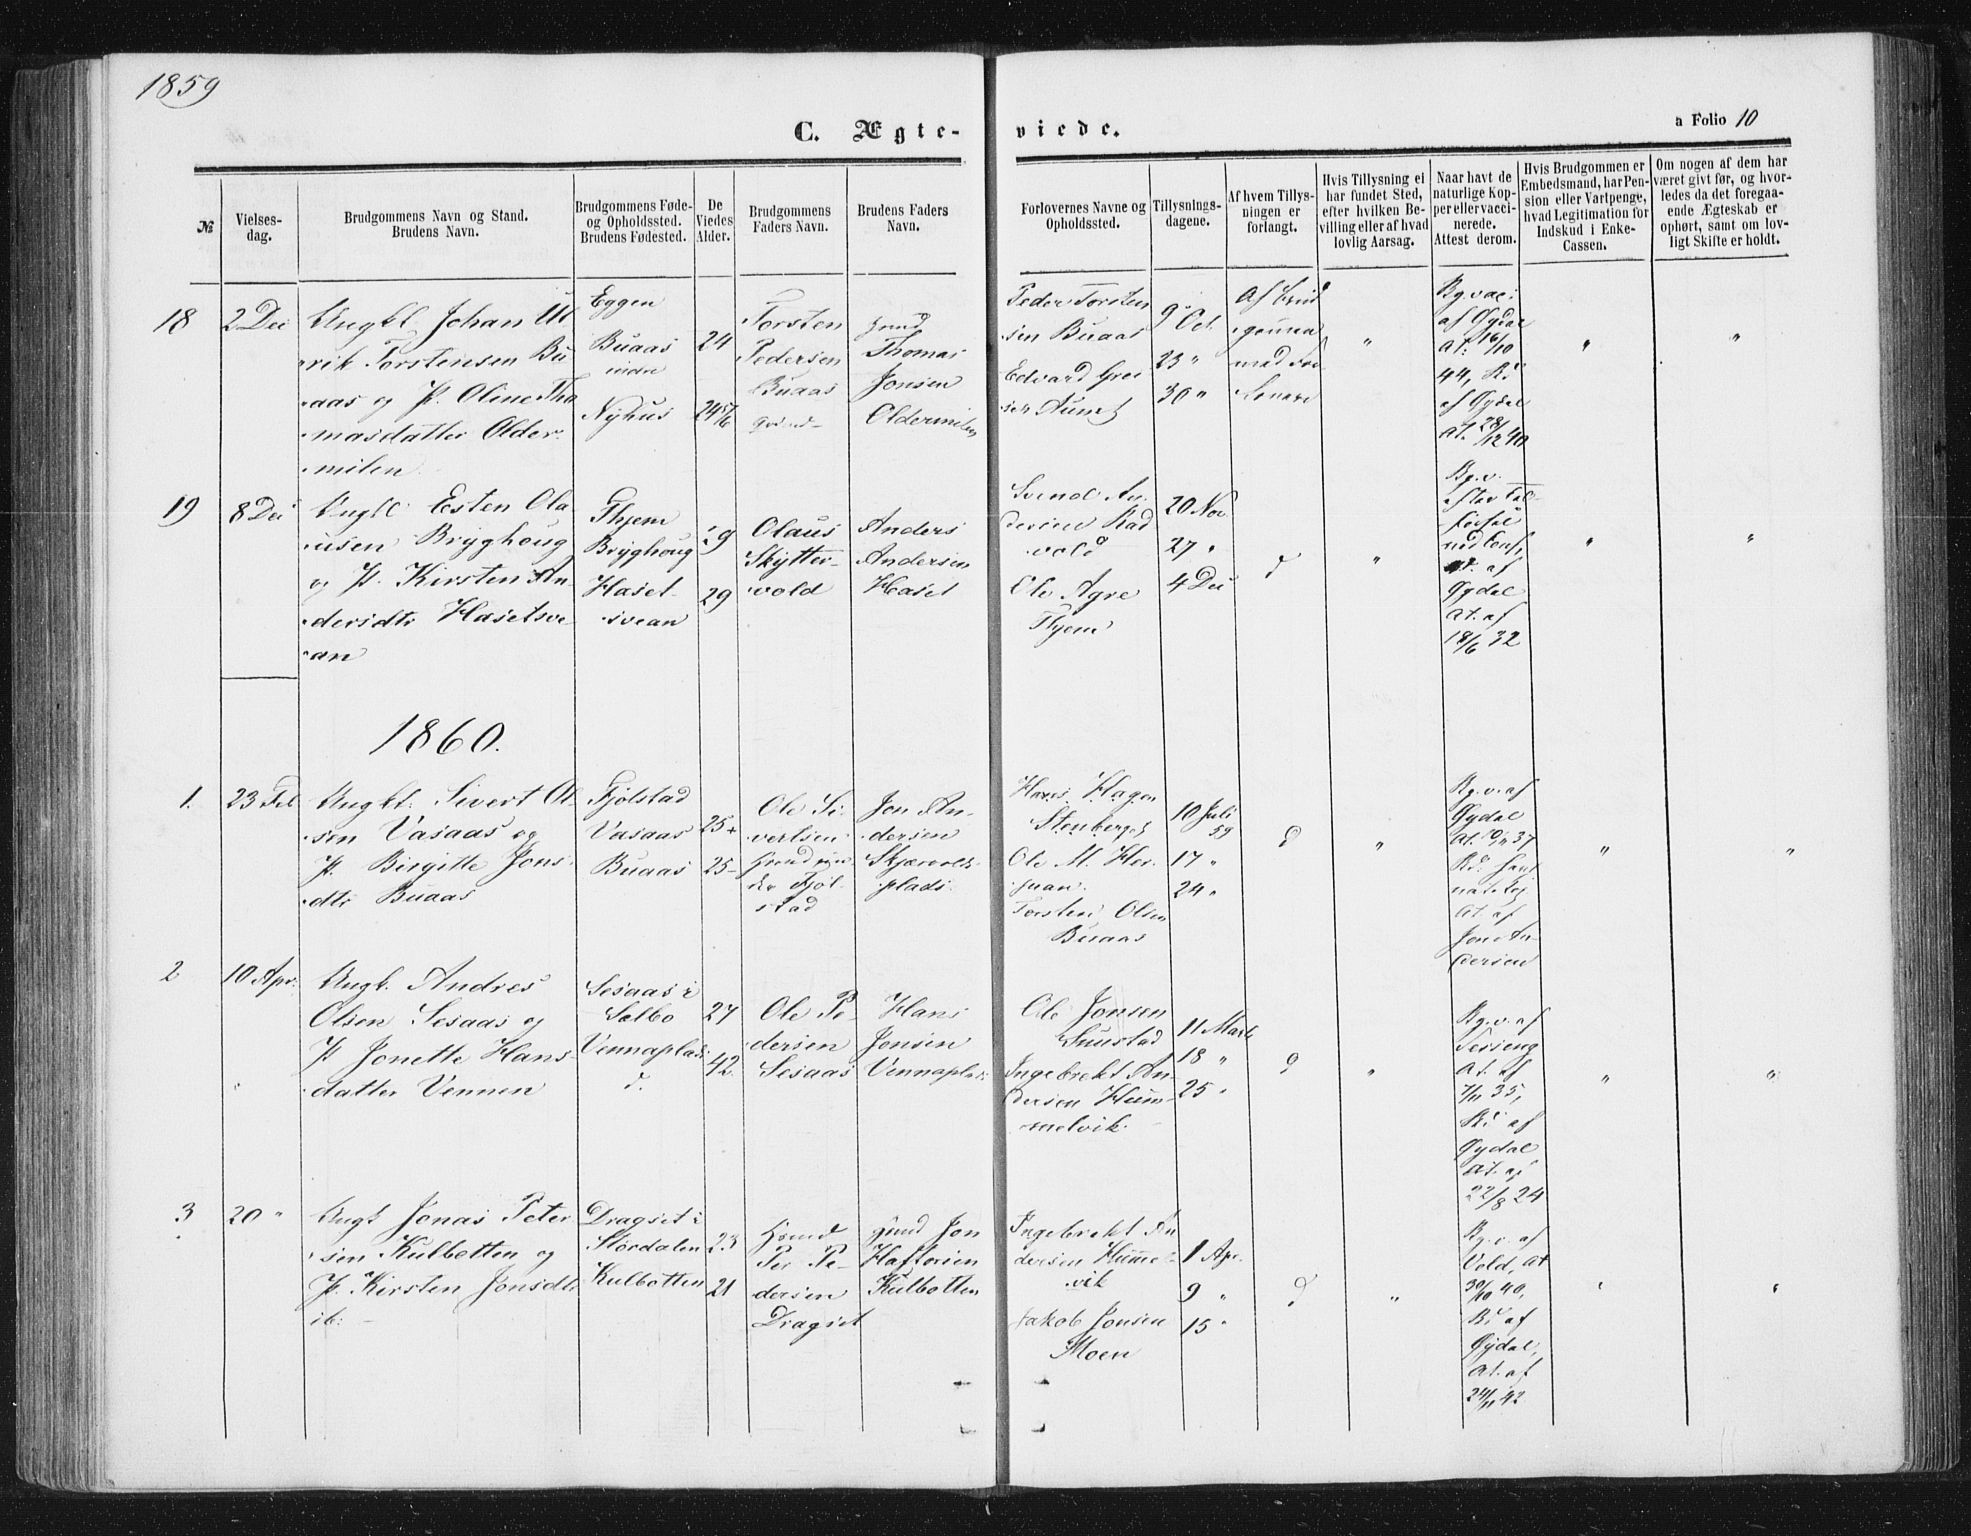 1859
C. Ægte- viede.
a Folio 10
№
Vielses-
dag.
Brudgommens Navn og Stand.
Brudens Navn.
Brudgommens Føde-
og Opholdssted.
Brudens Fødested.
De
Viedes
Alder.
Brudgommens
Faders Navn.
Brudens Faders
Navn.
Forlovernes Navne og
Opholdssted.
Tillysnings-
dagene.
Af hvem Tillys-
ningen er
forlangt.
Hvis Tillysning ei
har fundet Sted,
efter hvilken Be-
villing eller af hvad
lovlig Aarsag.
Naar havt de
naturlige Kop-
per eller vacci-
nerede.
Attest derom.
Hvis Brudgommen er
Embedsmand, har Pen-
sion eller Vartpenge,
hvad Legitimation for
Indskud i Enke-
Cassen.
Om nogen af dem har
været givt før, og hvor-
ledes da det foregaa-
ende Ægteskab er
ophørt, samt om lov-
ligt Skifte er holdt.
18
2 Dec
Ungkl. Johan Ul
rik Torstensen Bu
aas og P. Oline Tho
masdatter Older
milen
Eggen
Buaas
Nyhus
24
24 5/6
Torsten
Pedersen
Buaas
Thomas
Jonsen
Oldermilen
Peder Torsten
sen Buaas
Edvard Grei
ser Aunet
9 Oct.
23 "
30 "
Af Brud
gommen
med For
lovere
"
Bg. vac:
af Gydal
at: 16/10
44, Bd
af Gydal
at. 28/12 40
"
"
19
8 Dec
Ungkl Esten Ola
usen Bryghoug
og P. Kirsten An
dersdtr Hasetsve
an
Thjem
Bryghoug
Haset-
svean
29
29
Olaus
Skytter-
vold
Anders
Andersen
Haset
Svend An
dersen Rad
vold
Ole Agre
Thjem
20 Nov
27 "
4 Dec
d
"
Bg. v.
efter
af
Gydal
at. af
18/6 32
"
"
1860.
1.
23 Feb
Ungkl. Sivert Ol
sen Vasaas og
P. Birgitte Jons
dtr Buaas
Fjølstad
Vasaas
Buaas
25
25
Ole Si-
vertsen
Fjøl-
stad
Jon An-
dersen
Skjærvolds
plads
Hans Hagen
Stenberget
Ole M. Her-
juan.
Torsten Olsen
Buaas
10 Juli
59
17 "
24 "
d
"
Bg. v. af
Gydal
at. 37
at. af
Jon An-
dersen
"
"
2
10 Apr.
Ungk. Andres
Olsen Sesaas og
P Jonette Hans-
datter Vennen
Sesaas i
Selbo
Vennaplads
d.
27
42
Ole Pe-
dersen
Sesaas
Hans
Jonsen
Vennaplads
Ole Jonsen
Suustad
Ingebrekt An-
dersen Hum-
melvik.
11 Marts
18 "
25 "
d
"
Bg. v. af
at. af
7/11 35,
Bd af
Gydal
at. af
22/8 24
"
"
3
20 "
Ungk Jonas Peter
sen Kulbotten og
P. Kirsten Jonsdtr
ib:
Dragset i
Størdalen
Kulbotten
23
21
Gmd
Per Pe-
dersen
Dragset
Gmd Jon
Haftorsen
Kulbotten
Ingebrekt An
dersen Hummel-
vik
Jakob Jonsen
Moen
1 Apr.
9 "
15 "
d
"
Bg. v. af
Vold, at
30/10 40,
Bd af
Gydal,
at. af
24/11 42
"
"